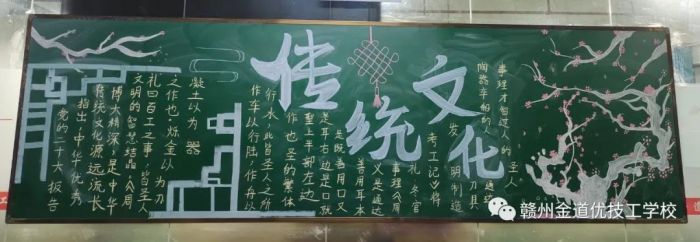 传统文化
党的二十大报告
指出:中华优秀
传统文化源远流长
博大精深,是中华
文明的智慧结晶《周
礼》百工之事,皆圣人
之作也。烁金以为刃
凝土以为器
作车以行陆,作舟以
行水,此皆圣人之所
作也 圣的繁体
圣上半部左边
是耳右边是口就
是既善用口又
善用耳本
义是通达
事理《周
礼 冬官
考工记》将
发明制造
刀具
陶器车船的人
事理才
圣人
赣州金道优技工学校